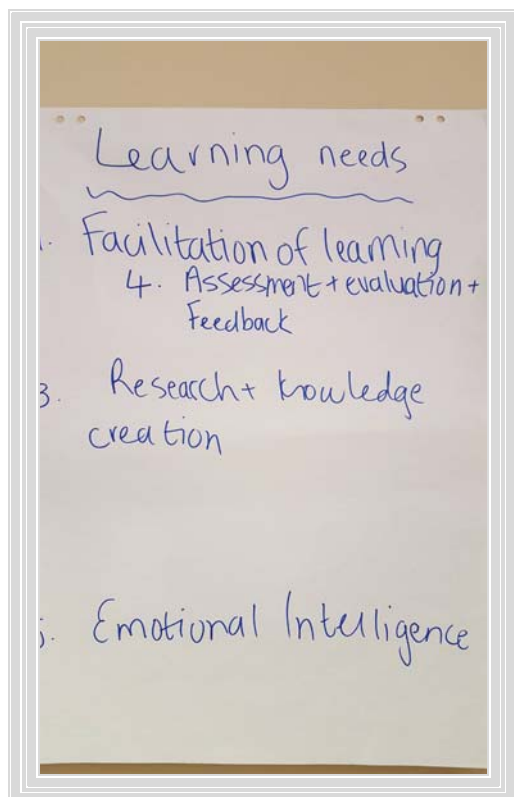 Learning needs
1. Facilitation of learning
4. Assessment + evaluation +
Feedback
3. Research + knowledge
creation
5. Emotional Intelligence